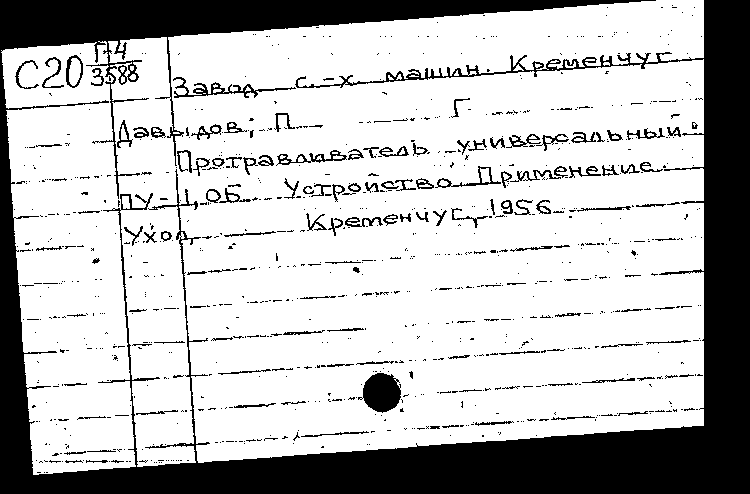 С20 П-4
3588
Завод с.-х. машин. Кременчуг
Давыдов, П Г
Протравливатель универсальный
ПУ-1,0Б Устройство. Применение.
Уход. Кременчуг, 1956